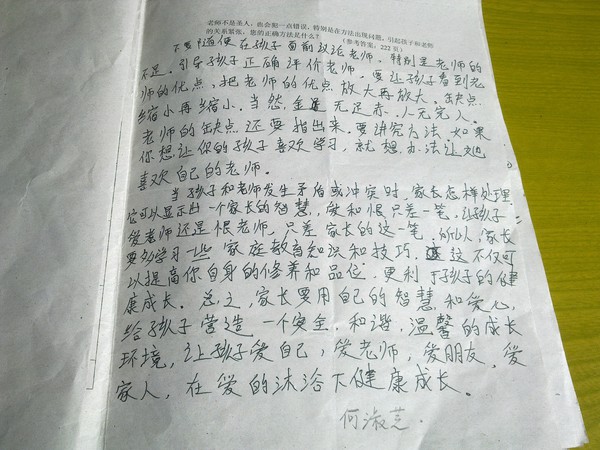 老师不是圣人，也会犯一点错误，特别是在方法出现问题，引起孩子和老师
的关系紧张，您的正确方法是什么？ （参考答案：222页）
不要随便在孩子面前议论老师。特别是老师的
不足。引导孩子正确评价老师，要让孩子看到老
师的优点，把老师的优点放大再放大，缺点
缩小再缩小。当然，金无足赤，人无完人。
老师的缺点还要指出来，要讲究方法。如果
你想让你的孩子喜欢学习，就想办法让她
喜欢自己的老师。
当孩子和老师发生矛盾或冲突时，家长怎样处理
它可以显示出一个家长的智慧，爱和恨只差一笔，让孩子
爱老师还是恨老师，只差家长的这一笔，所以，家长
要多学习一些家庭教育知识和技巧，这不仅可
以提高你自身的修养和品位，更利于孩子的健
康成长。总之，家长要用自己的智慧和爱心，
给孩子营造一个安全，和谐，温馨的成长
环境，让孩子爱自己，爱老师，爱朋友，爱
家人，在爱的沐浴下健康成长。
何淑芝.